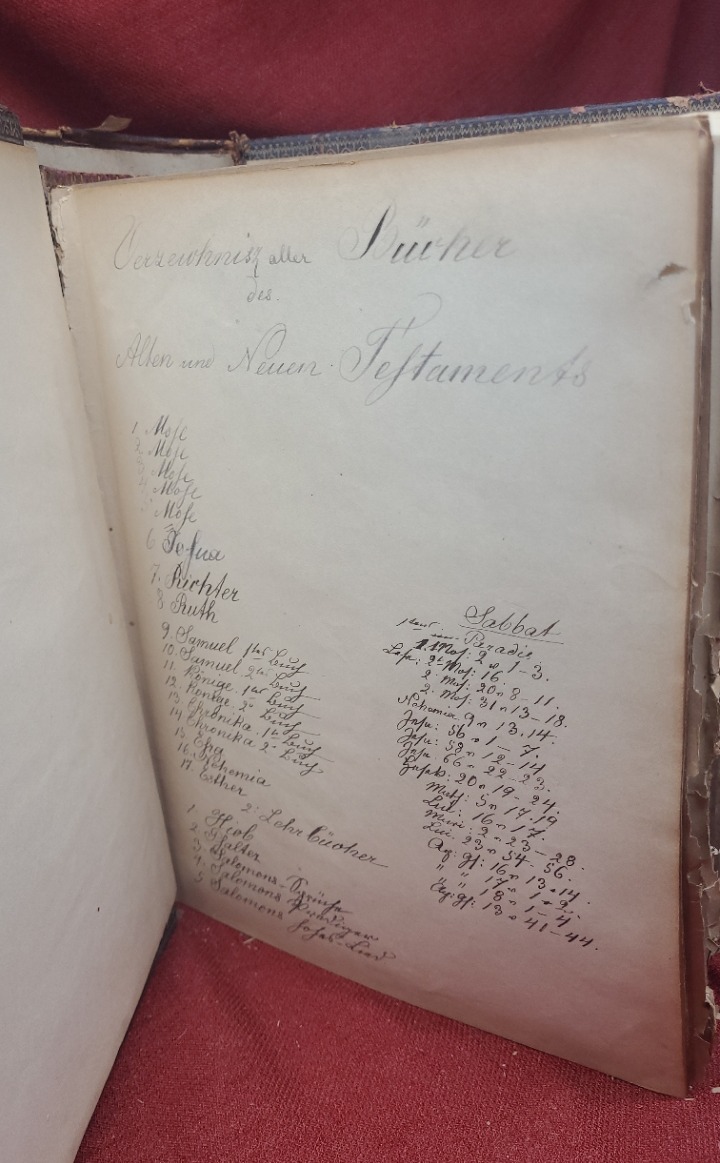 Verzeichnisz aller Bücher
des.
Alten und Neuen Testaments
1 Mose
2 Mose
3 Mose
4 Mose
5 Mose
6 Josua
7. Richter
8 Ruth
9. Samuel 1tes Buch
10. Samuel 2tes Buch
11. Könige. 1tes Buch
12. Könige 2s Buch
13. Chronika. 1s Buch
14 Chronika 2s Buch
15 Esra
16. Nehemia
17. Esther
2: Lehr Bücher
1. Hiob
2 Psalter
3. Salomons-Sprüche
4. Salomons Prediger
5 Salomons Hohes-Lied
Sabbat
Paradis
1 Mos: 2 1-3.
2t Mos: 16
2. Mos: 20 8-11.
2. Mos: 31 13-18.
Nehemia 9 13.14.
Jesa: 56 1-7.
Jesa: 58 12-14
Jesa: 66 22-23.
Hesek: 20 19-24.
Math: 5 17.19
Luc: 16 17.
Marc: 2 23-28.
Luc: 23 54-56.
Ap: gf: 16 13+14.
" " 17 1+2.
" " 18 1-4
Ap: gf: 13 41-44.